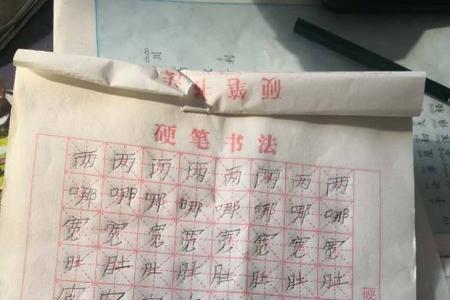 硬笔书法
硬笔书法
两两两两两两两两
哪哪哪哪哪哪哪哪
宽宽宽宽宽宽宽宽
肚肚肚肚肚肚肚肚
硬